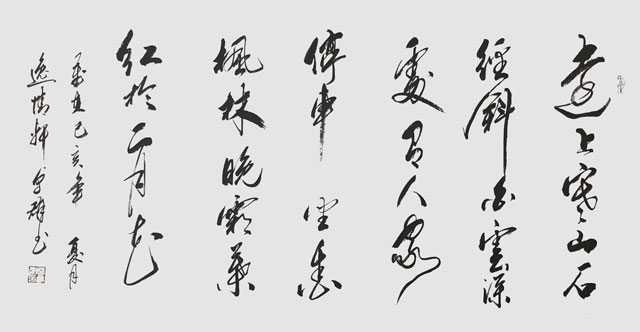 遠上寒山石
經斜白雲深
處有人家
停車坐愛
楓林晚霜葉
红於二月花
己亥年夏月
逸情